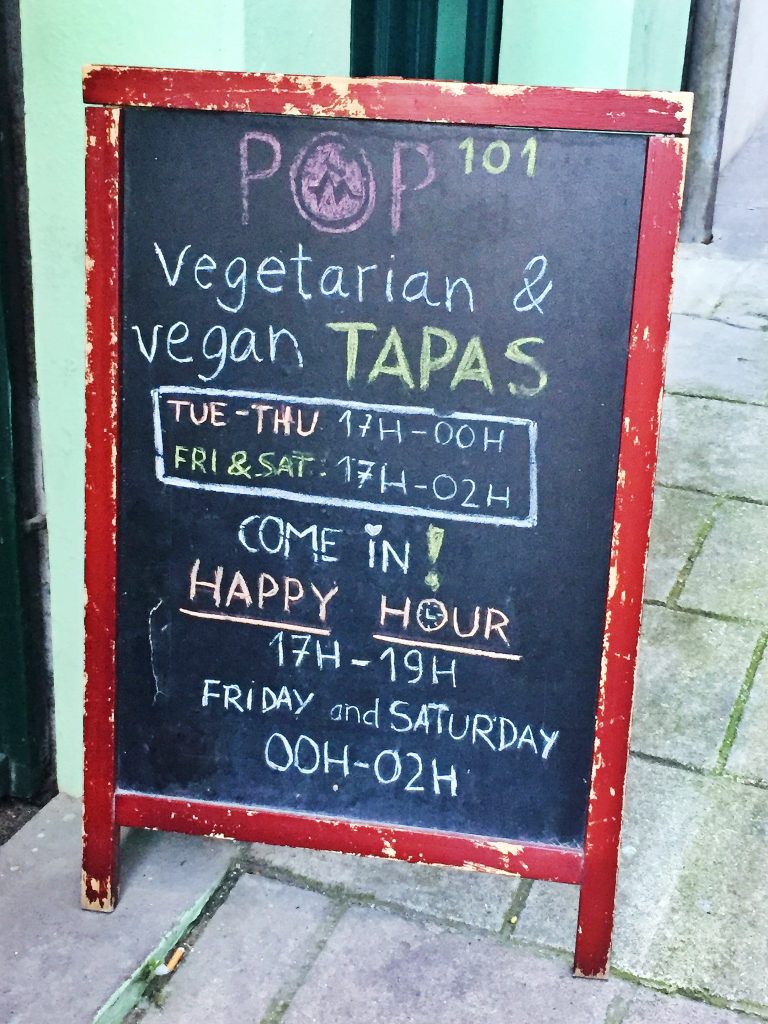 POP 101
vegetarian &
vegan TAPAS
TUE-THU 17H-00H
FRI & SAT: 17H-02H
COME iN!
HAPPY HOUR
17H-19H
FRiDAY and SATURDAY
00H-02H